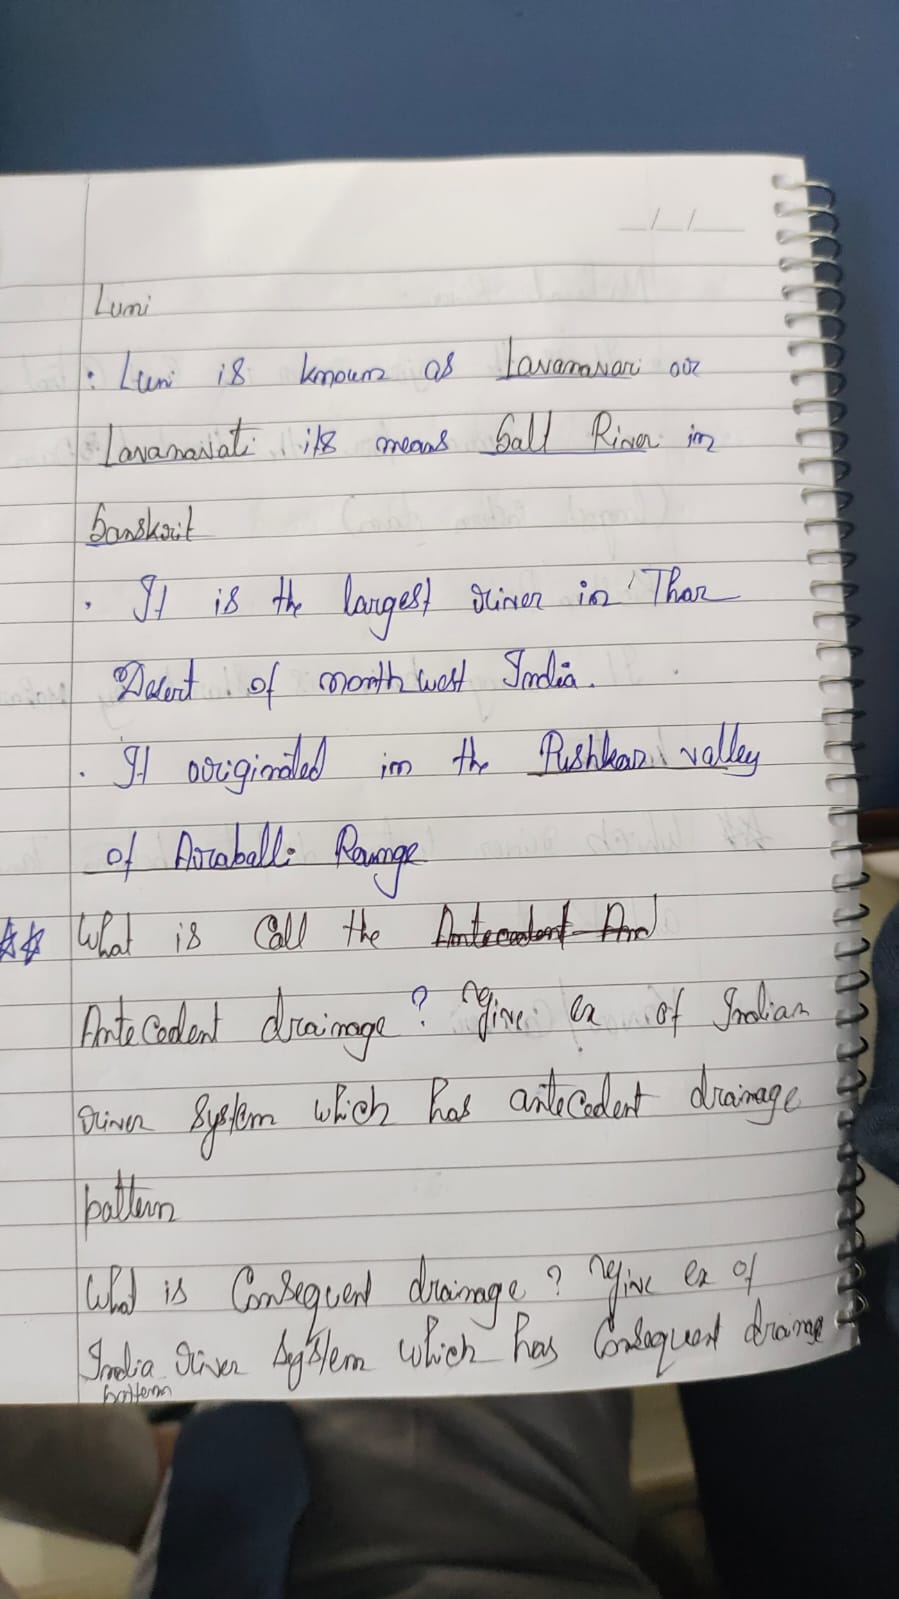 Luni
: Luni is known as Lavanavari or
Lavanavati its means Salt River in
Sanskrit
. It is the largest river in Thar
Desert of north west India.
. It originated in the Pushkar valley
of Araballi Range
** What is Call the Antecedent And
Antecedent drainage? Give ex of Indian
river System which has antecedent drainage
pattern
What is Consequent drainage? Give ex of
India river System which has Consequent drainage
pattern